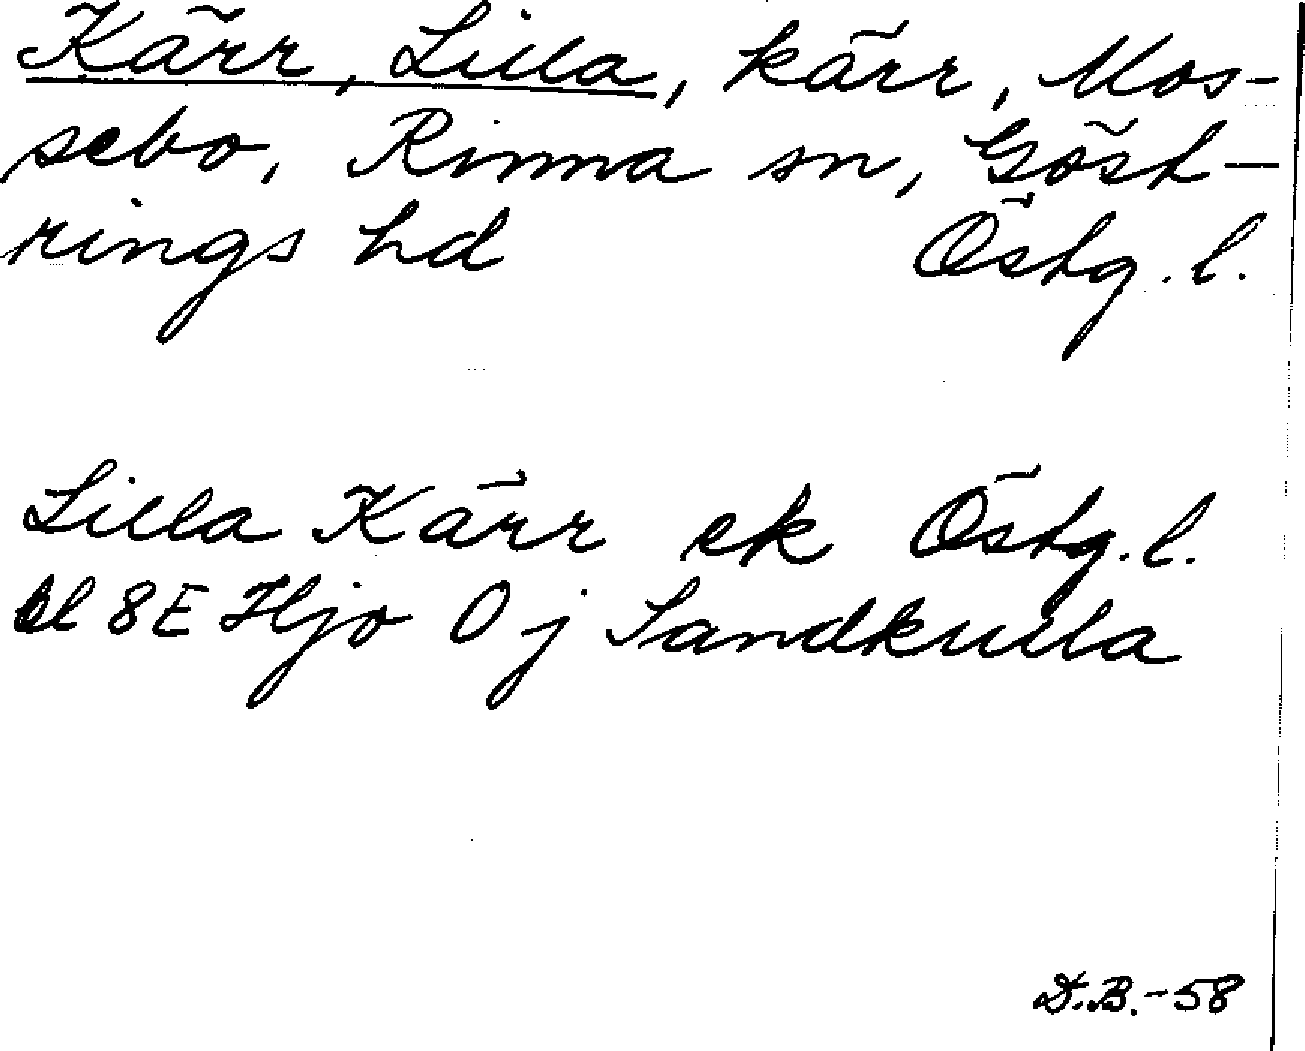 Kärr, Lilla, kärr, Mos-
sebo, Rinna sn, Göst-
rings hd Östg. l.
Lilla Kärr ek Östg. l.
bl 8E Hjo 0 j Sandkulla
D.B.-58